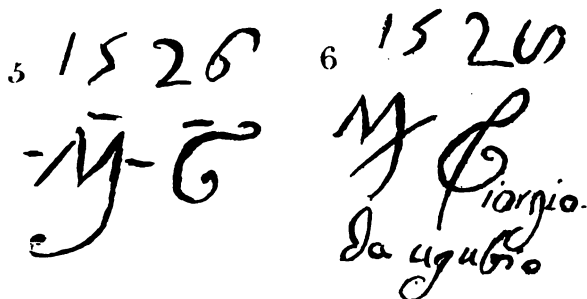 5 1526
-M- G
6 1525
M Giorgio.
da ugubio